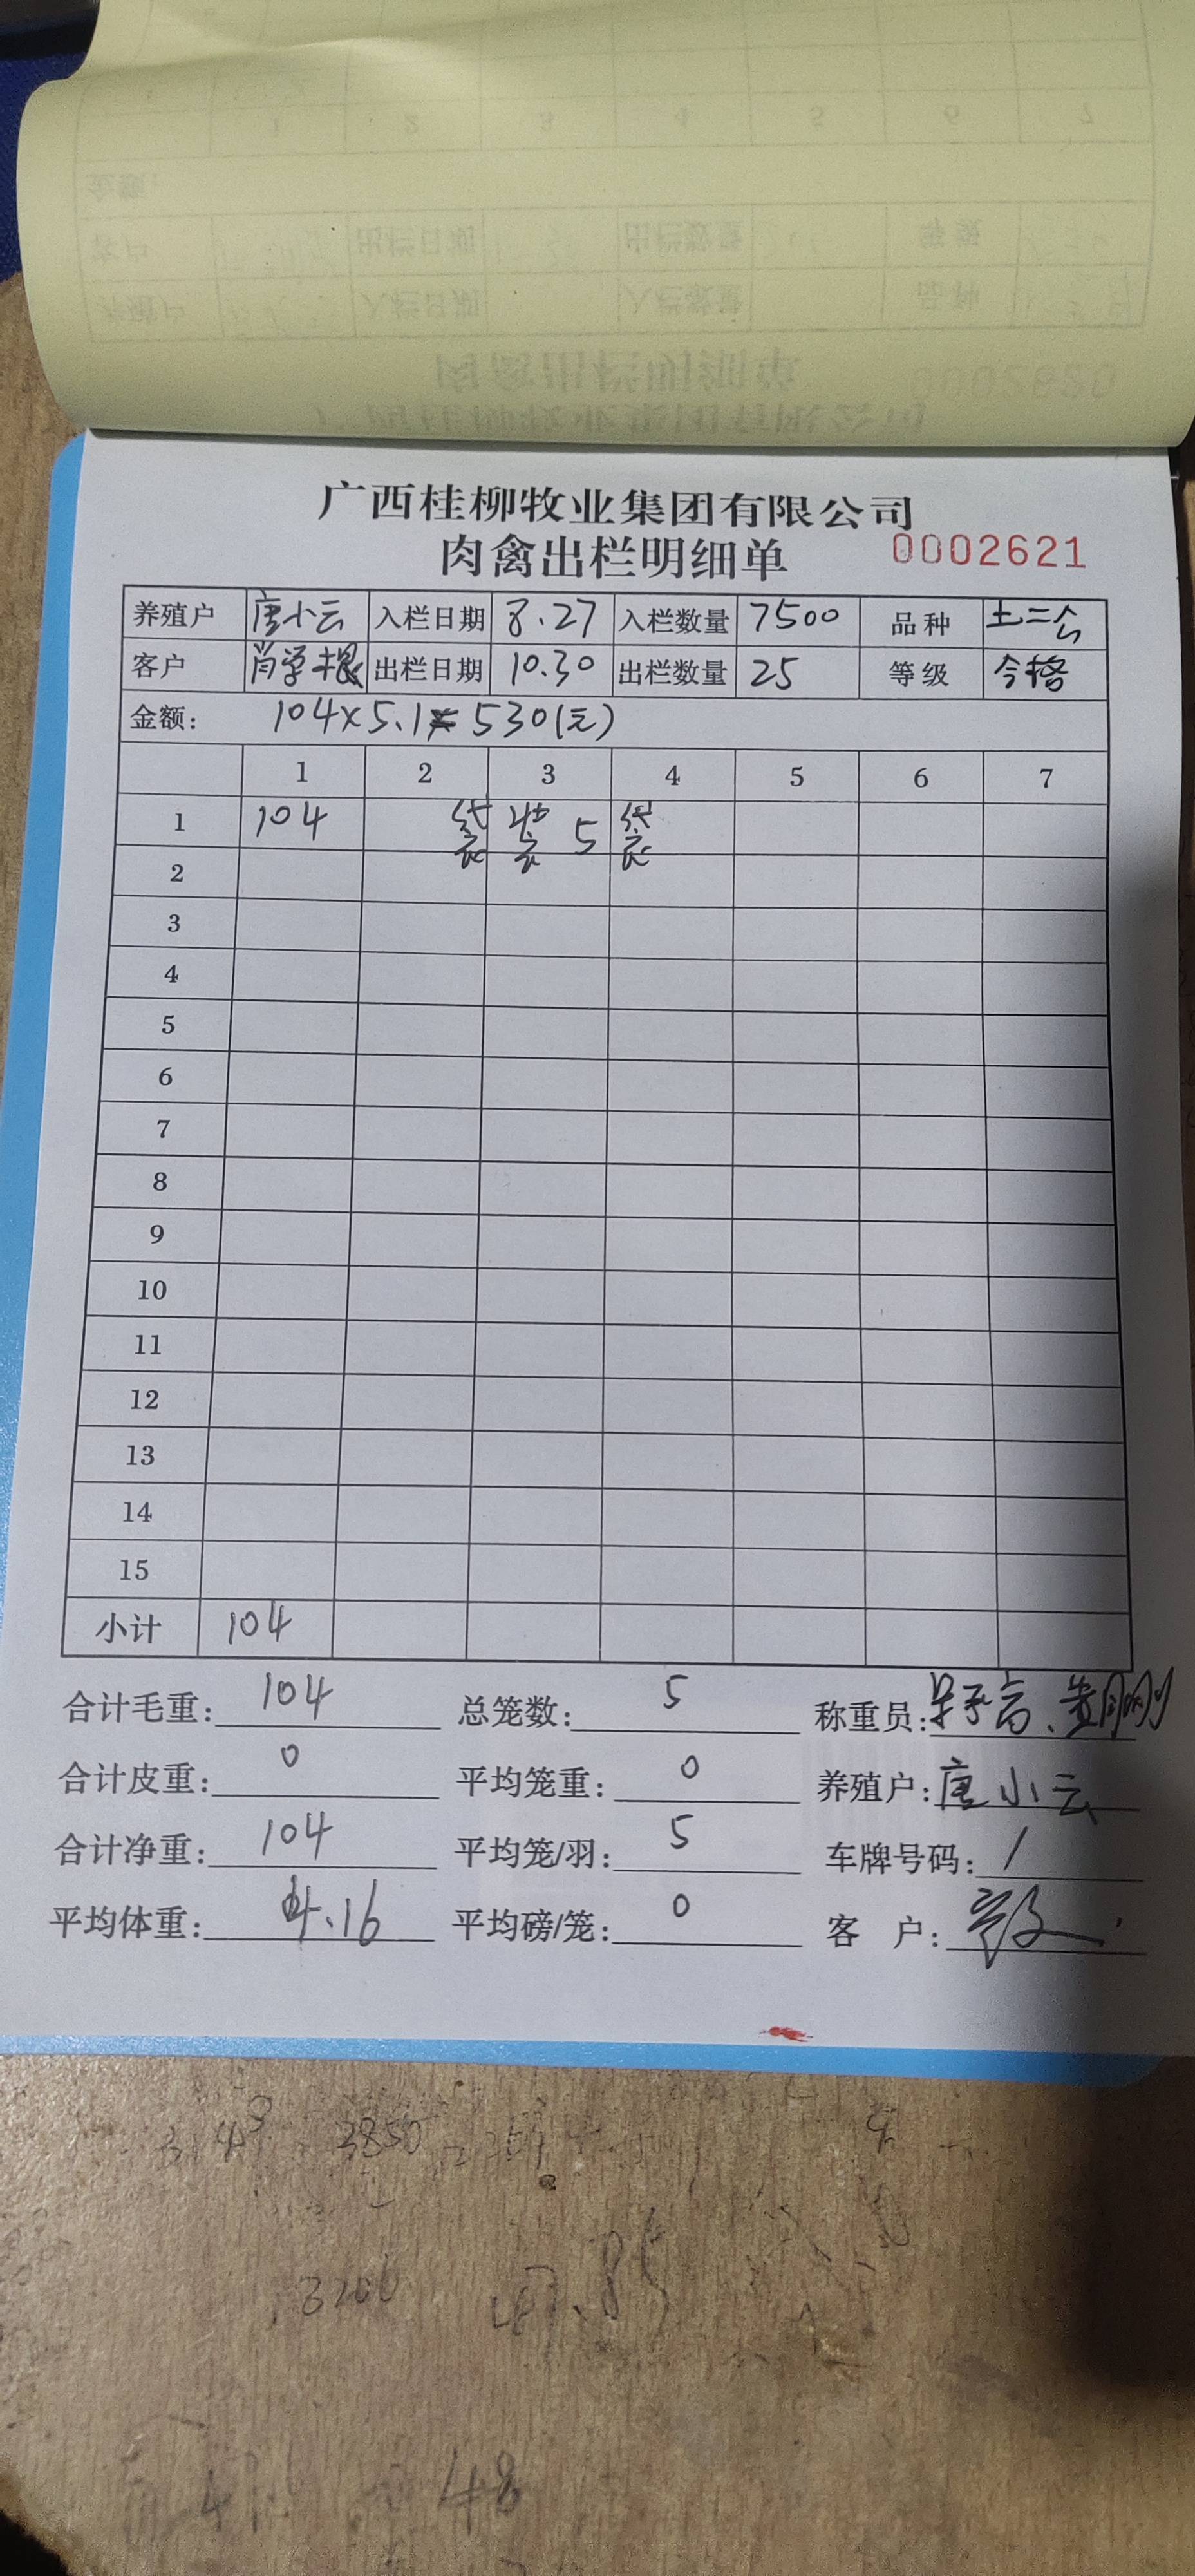 广西桂柳牧业集团有限公司
肉禽出栏明细单 0002621
养殖户 唐小云 入栏日期 8.27 入栏数量 7500 品种 土二公
客户 肖学根 出栏日期 10.30 出栏数量 25 等级 合格
金额: 104×5.1=530(元)
1 2 3 4 5 6 7
1 104 袋装5袋
2
3
4
5
6
7
8
9
10
11
12
13
14
15
小计 104
合计毛重: 104 总笼数: 5 称重员:
合计皮重: 0 平均笼重: 0 养殖户: 唐小云
合计净重: 104 平均笼/羽: 5 车牌号码: /
平均体重: 4.16 平均磅/笼: 0 客 户:
3850
3200
48